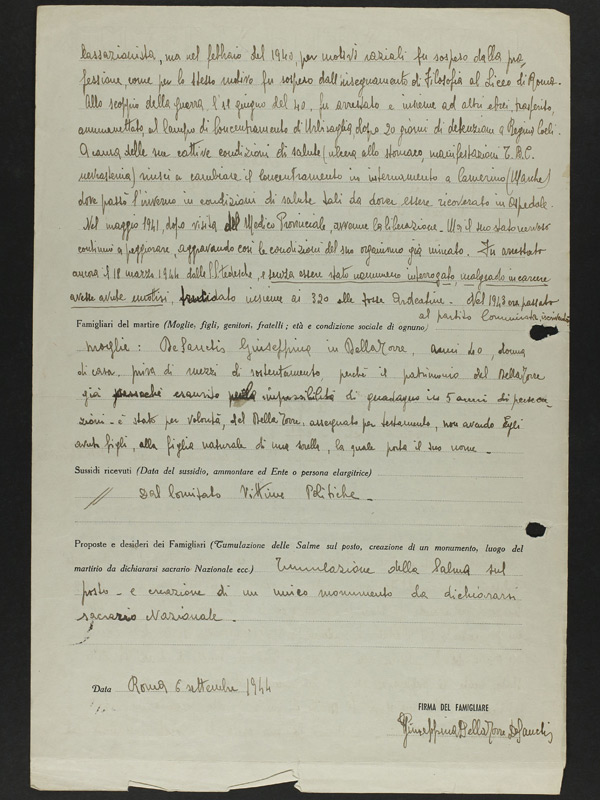 Cassazionista, ma nel febbraio del 1940, per motivi raziali fu sospeso dalla pro
fessione, come per lo stesso motivo fu sospeso dall'insegnamento di Filosofia al Liceo di Roma.
Allo scoppio della guerra, l'11 giugno del 40, fu arrestato e insieme ad altri ebrei, trasferito,
ammanettato, al Campo di Concentramento di Urbisaglia dopo 20 giorni di detenzione a Regina Coeli.
A causa delle sue cattive condizioni di salute (ulcera allo stomaco, manifestazioni T.B.C.
nevrastenia) riuscì a cambiare il concentramento in internamento a Camerino (Marche)
dove passò l'inverno in condizioni di salute tali da dover essere ricoverato in Ospedale.
Nel maggio 1941, dopo visita del Medico Provinciale, avvenne la liberazione - Ma il suo stato nervoso
continuò a peggiorare, aggravando così le condizioni del suo organismo già minato. Fu arrestato
ancora il 18 marzo 1944 dalle SS tedesche, e senza essere stato nemmeno interrogato, malgrado in carcere
avesse avute emottisi, fucilato insieme ai 320 alle Fosse Ardeatine. Nel 1943 era passato
al partito Comunista,
Famigliari del martire (Moglie; figli, genitori, fratelli; età e condizione sociale di ognuno)
moglie: De Sanctis Giuseppina in Della Torre, anni 40 donna
di casa, priva di mezzi di sostentamento, perché il patrimonio del Della Torre
già pressoché esaurito nella impossibilità di guadagno in 5 anni di persecu
zioni - è stato per volontà, del Della Torre, assegnato per testamento, non avendo Egli
avuto figli, alla figlia naturale di una sorella, la quale porta il suo nome -
Sussidi ricevuti (Data del sussidio, ammontare ed Ente o persona elargitrice)
// Dal Comitato Vittime Politiche -
Proposte e desideri dei Famigliari (Tumulazione delle Salme sul posto, creazione di un monumento, luogo del
martirio da dichiararsi sacrario Nazionale ecc.) Tumulazione della Salma sul
posto - e creazione di un unico monumento da dichiararsi
sacrario Nazionale -
Data Roma 6 settembre 1944
FIRMA DEL FAMIGLIARE
Giuseppina Della Torre De Sanctis